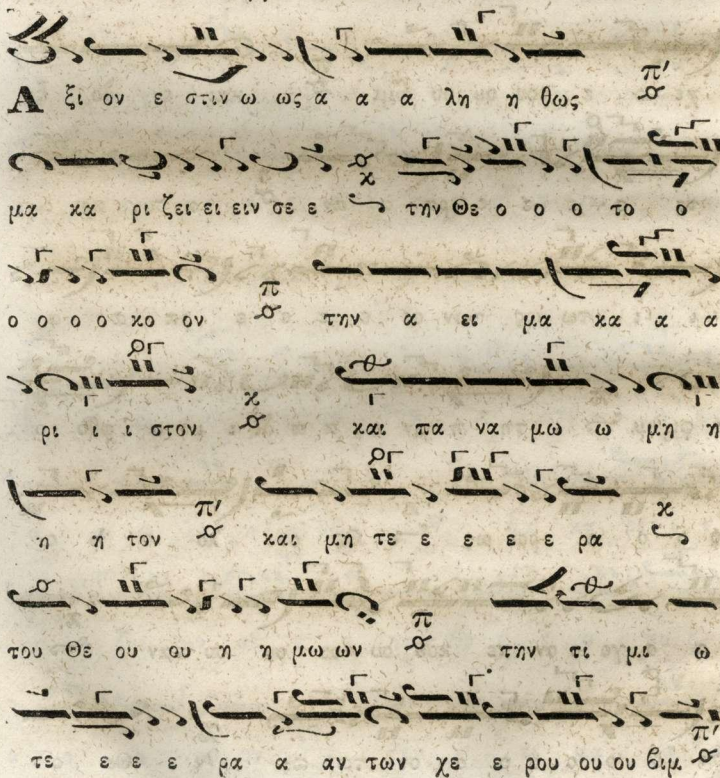 Α ξι ον ε στιν ω ως α α α λη η θως π'
μα κα ρι ζει ει ειν σε ε κ την Θε ο ο ο το ο
ο ο ο ο κο ον π την α ει μα κα α α
ρι ι ι στον κ και πα να μω ω μη η
η η τον π' και μη τε ε ε ε ε ρα κ
του Θε ου ου η η μω ων π την τι μι ω
τε ε ε ε ρα α αν των χε ε ρου ου ου βιμ π'